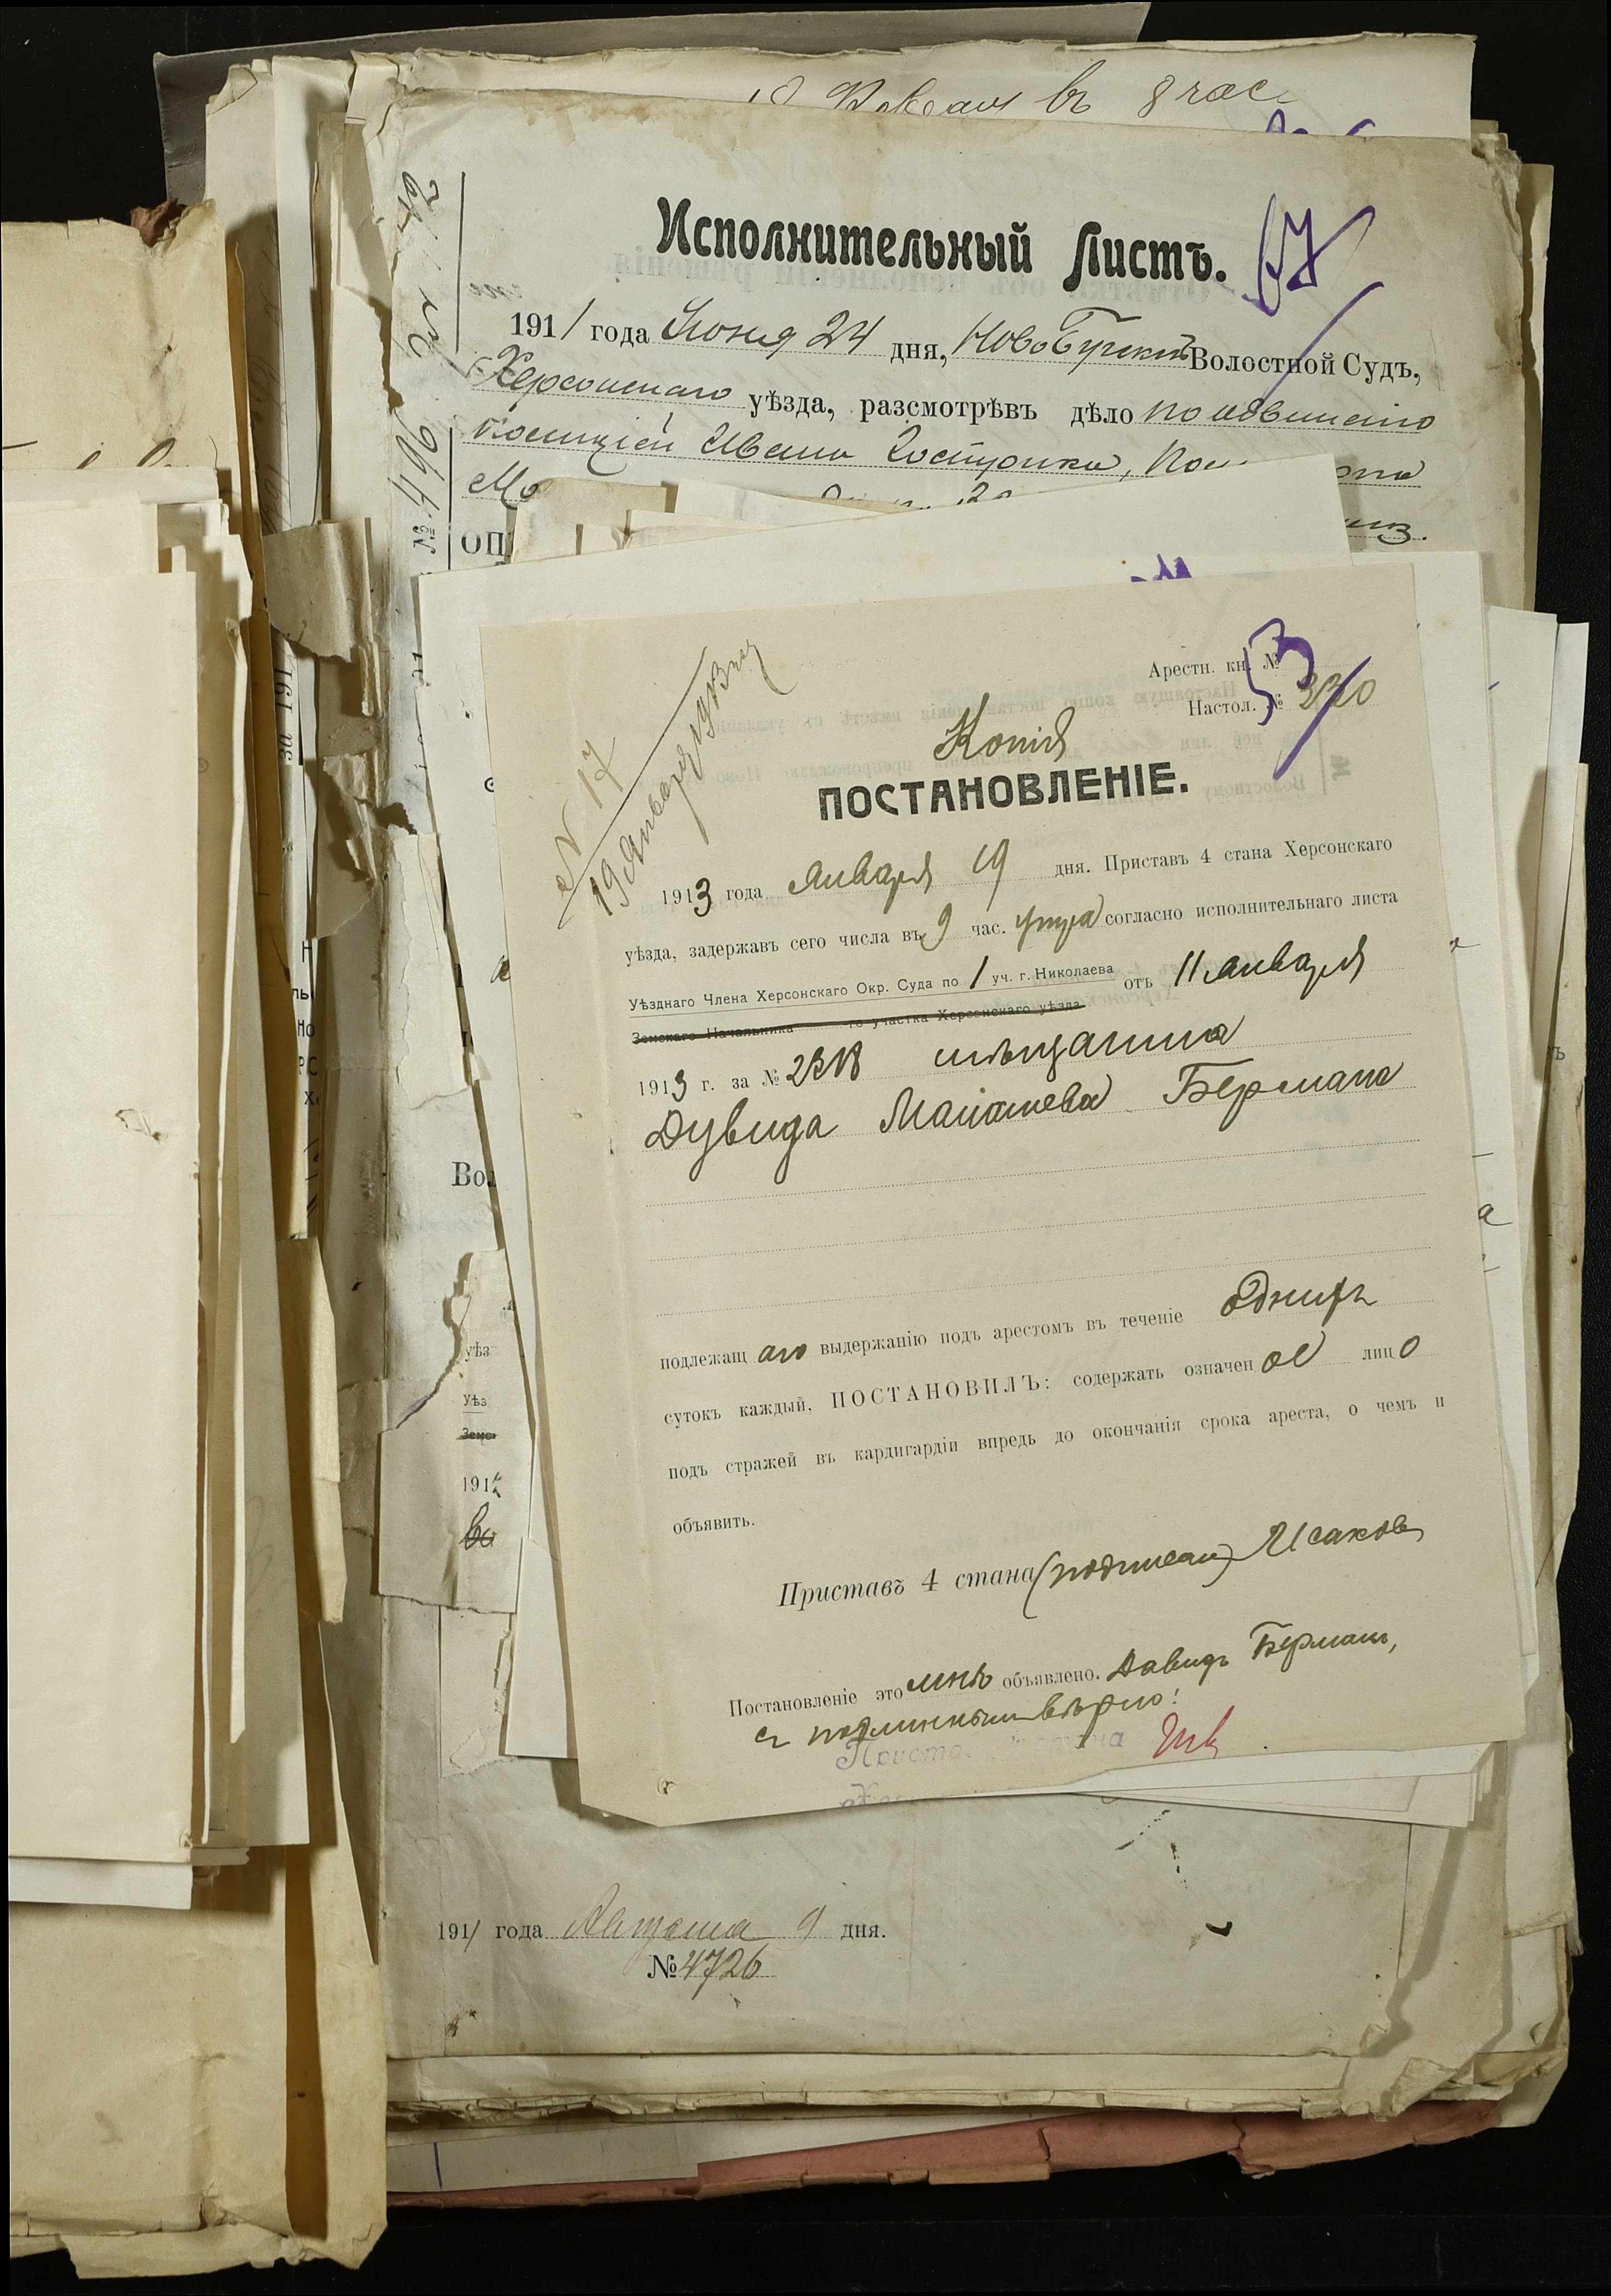 въ 8 час
Исполнительный Листъ.
67
1911 года Июня 24 дня, НовоБугскій Волостной Судъ,
Херсонскаго уѣзда, разсмотрѣвъ дѣло по обвиненію
полиціей Ивана
№ 496
ОП
за 191
Арестн. кн. №
53
Настол. №
Копія
ПОСТАНОВЛЕНІЕ.
N 17
19 Января 1913 г
1913 года Января 19 дня. Приставъ 4 стана Херсонскаго
уѣзда, задержавъ сего числа въ 9 час. утра согласно исполнительнаго листа
Уѣзднаго Члена Херсонскаго Окр. Суда по 1 уч. г. Николаева отъ 11 Января
Земскаго Начальника го участка Херсонскаго уѣзда
1913 г. за № мѣщанина
Дувида Бермана
подлежащ аго выдержанію подъ арестомъ въ теченіе однихъ
сутокъ каждый, ПОСТАНОВИЛЪ: содержать означен ое лицо
подъ стражей въ кардигардіи впредь до окончанія срока ареста, о чемъ и
объявить.
Приставъ 4 стана (подписалъ) Исаковъ
Постановленіе это мнѣ объявлено. Давидъ Берманъ,
съ подлиннымъ вѣрно!
Вол
уѣз
Уѣз
Земс
191
1911 года Августа 9 дня.
№ 4726